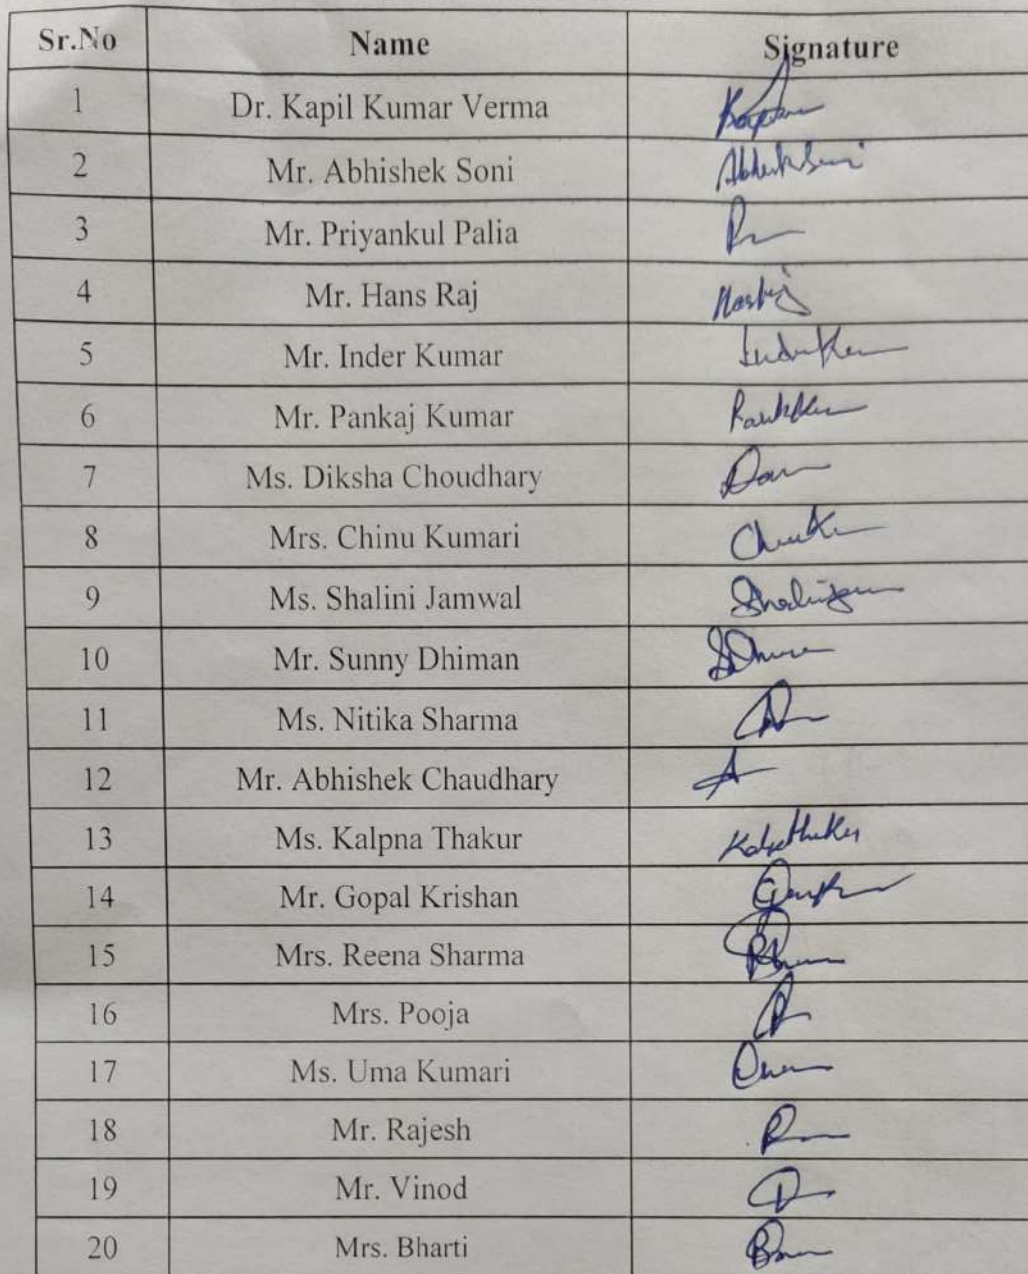 Sr.No Name Signature
1 Dr. Kapil Kumar Verma
2 Mr. Abhishek Soni
3 Mr. Priyankul Palia
4 Mr. Hans Raj
5 Mr. Inder Kumar
6 Mr. Pankaj Kumar
7 Ms. Diksha Choudhary
8 Mrs. Chinu Kumari
9 Ms. Shalini Jamwal
10 Mr. Sunny Dhiman
11 Ms. Nitika Sharma
12 Mr. Abhishek Chaudhary
13 Ms. Kalpna Thakur
14 Mr. Gopal Krishan
15 Mrs. Reena Sharma
16 Mrs. Pooja
17 Ms. Uma Kumari
18 Mr. Rajesh
19 Mr. Vinod
20 Mrs. Bharti